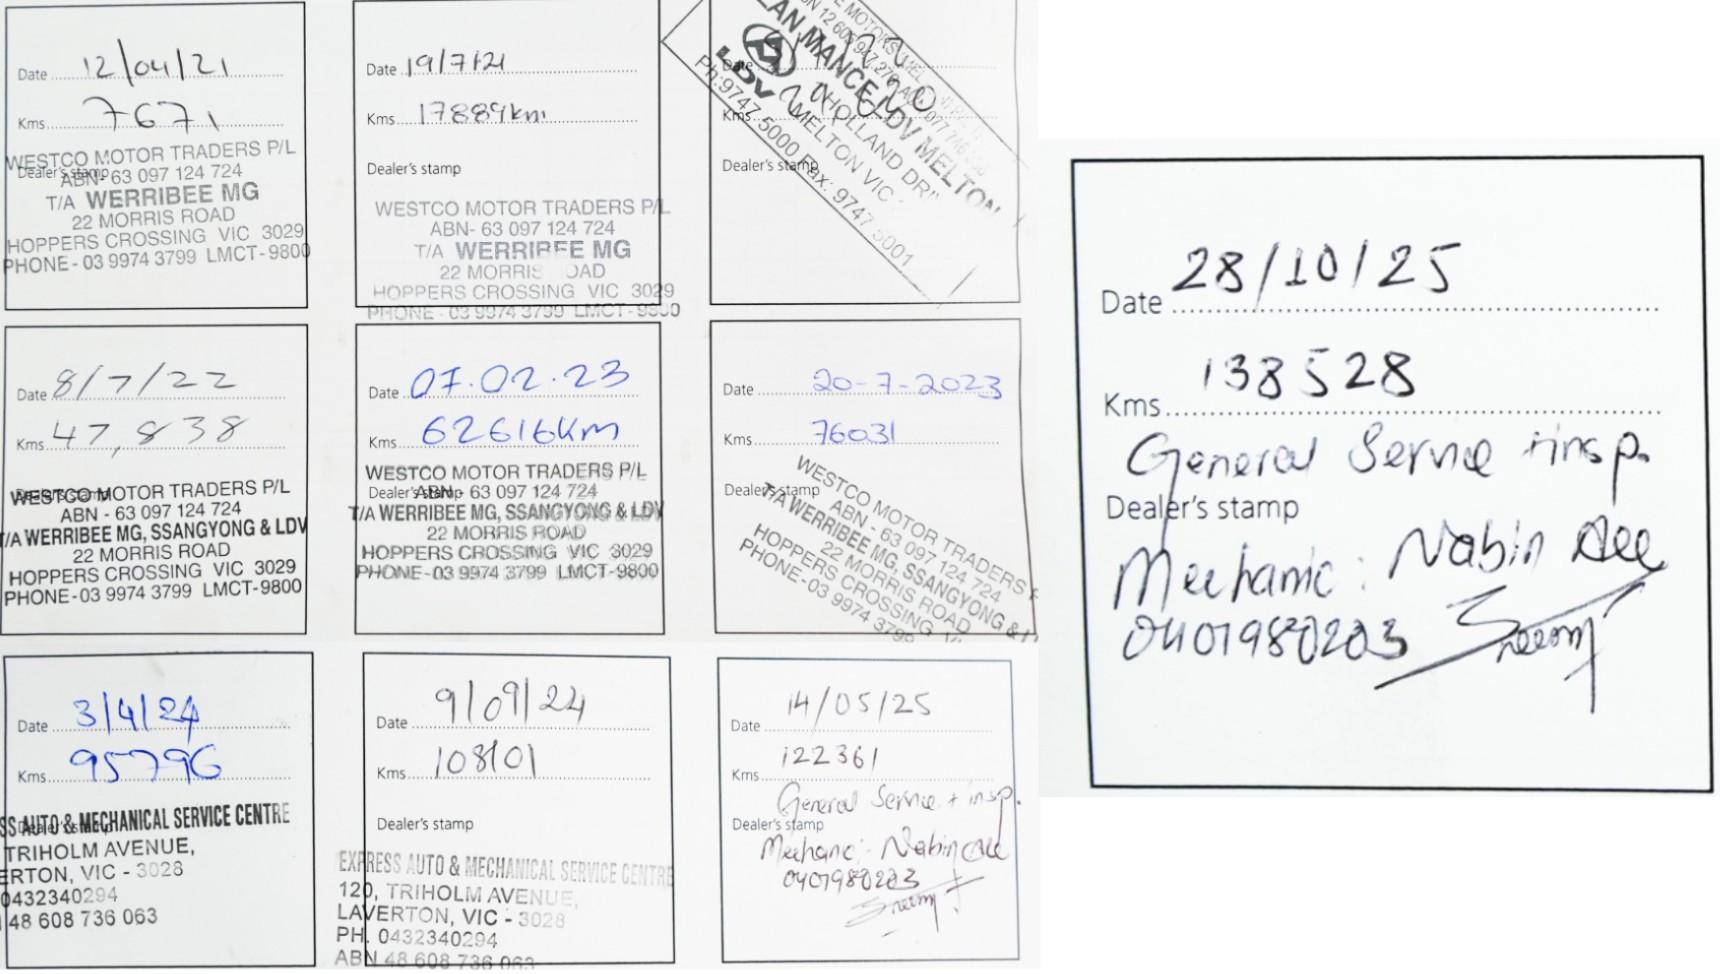 Date 12/04/21
Kms 7671
Dealer's stamp
WESTCO MOTOR TRADERS P/L
ABN- 63 097 124 724
T/A WERRIBEE MG
22 MORRIS ROAD
HOPPERS CROSSING VIC 3029
PHONE - 03 9974 3799 LMCT-9800
Date 19/7/21
Kms 17889km
Dealer's stamp
WESTCO MOTOR TRADERS P/L
ABN- 63 097 124 724
T/A WERRIBEE MG
22 MORRIS ROAD
HOPPERS CROSSING VIC 3029
PHONE - 03 9974 3799 LMCT-9800
Date
Kms
Dealer's stamp
LDV
MANCE LDV MELTON
HOLLAND DR
MELTON VIC
Ph:9747 5000 Fax: 9747 5001
Date 8/7/22
Kms 47,838
Dealer's stamp
WESTCO MOTOR TRADERS P/L
ABN - 63 097 124 724
T/A WERRIBEE MG, SSANGYONG & LDV
22 MORRIS ROAD
HOPPERS CROSSING VIC 3029
PHONE-03 9974 3799 LMCT-9800
Date 07.02.23
Kms 62616Km
Dealer's stamp
WESTCO MOTOR TRADERS P/L
ABN - 63 097 124 724
T/A WERRIBEE MG, SSANGYONG & LDV
22 MORRIS ROAD
HOPPERS CROSSING VIC 3029
PHONE-03 9974 3799 LMCT-9800
Date 20-7-2023
Kms 76031
Dealer's stamp
WESTCO MOTOR TRADERS P
ABN - 63 097 124 724
T/A WERRIBEE MG, SSANGYONG & L
22 MORRIS ROAD
HOPPERS CROSSING VI
PHONE-03 9974 3799
Date 3/4/24
Kms 95796
Dealer's stamp
SS AUTO & MECHANICAL SERVICE CENTRE
TRIHOLM AVENUE,
ERTON, VIC - 3028
0432340294
48 608 736 063
Date 9/09/24
Kms 108101
Dealer's stamp
EXPRESS AUTO & MECHANICAL SERVICE CENTRE
120, TRIHOLM AVENUE,
LAVERTON, VIC - 3028
PH. 0432340294
ABN 48 608 736 063
Date 14/05/25
Kms 122361
General Service + insp.
Dealer's stamp
Mechanic:- Nabin Ale
0401980203
Date 28/10/25
Kms 138528
General Service + insp.
Dealer's stamp
Mechanic: Nabin Ale
0401980203